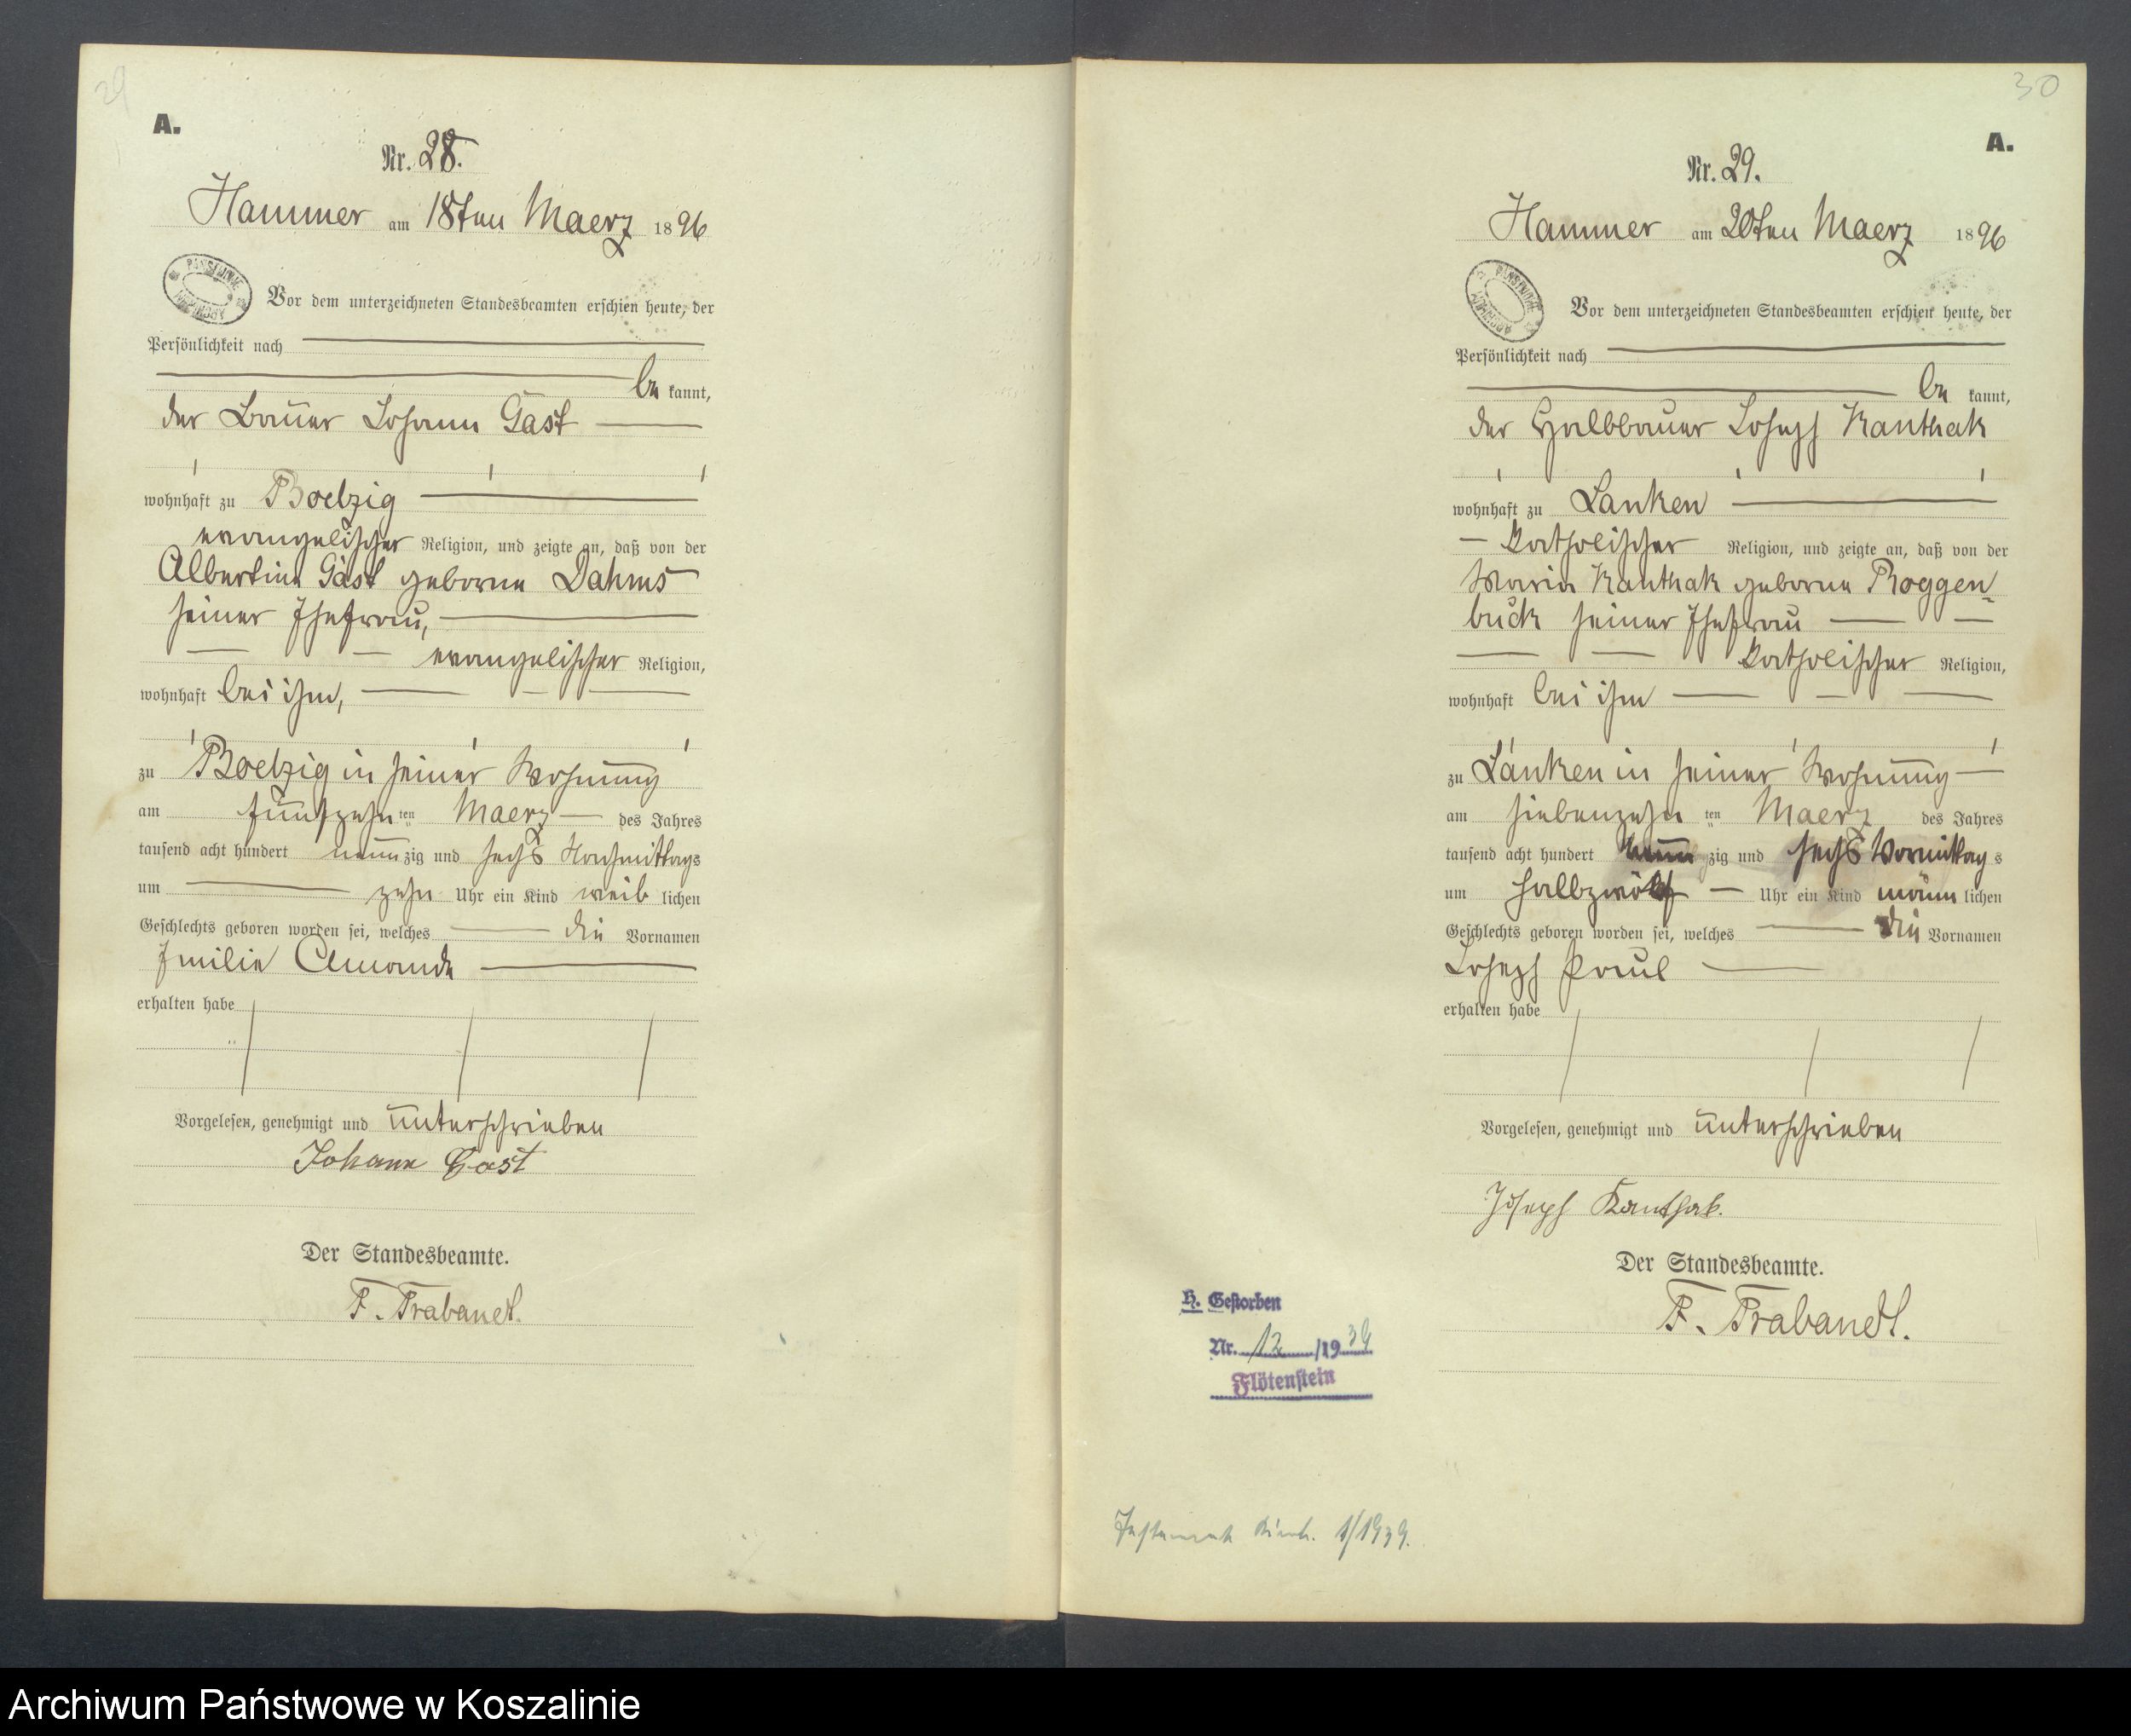 29
A.
Nr. 28.
Hammer am 18ten Maerz 1896
Vor dem unterzeichneten Standesbeamten erschien heute, der
Persönlichkeit nach
be kannt,
der Bauer Johann Gast
wohnhaft zu Boelzig
evangelischer Religion, und zeigte an, daß von der
Albertine Gast geborne Dahms
seiner Ehefrau,
evangelischer Religion,
wohnhaft bei ihm,
zu Boelzig in seiner Wohnung
am fünfzehn ten Maerz des Jahres
tausend acht hundert neunzig und sechs Nachmittags
um zehn Uhr ein Kind weiblichen
Geschlechts geboren worden sei, welches die Vornamen
Emilie Amanda
erhalten habe
Vorgelesen, genehmigt und unterschrieben
Johann Gast
Der Standesbeamte.
F. Trabandt.
30
A.
Nr. 29.
Hammer am 20ten Maerz 1896
Vor dem unterzeichneten Standesbeamten erschien heute, der
Persönlichkeit nach
be kannt,
der Halbbauer Joseph Kanthak
wohnhaft zu Lanken
katholischer Religion, und zeigte an, daß von der
Maria Kanthak geborne Roggen=
buck seiner Ehefrau
katholischer Religion,
wohnhaft bei ihm
zu Lanken in seiner Wohnung
am siebenzehn ten Maerz des Jahres
tausend acht hundert neunzig und sechs Vormittags
um halbzwölf Uhr ein Kind männlichen
Geschlechts geboren worden sei, welches die Vornamen
Joseph Paul
erhalten habe
Vorgelesen, genehmigt und unterschrieben
Joseph Kanthak.
Der Standesbeamte.
F. Trabandt.
H. Gestorben
Nr. 12 /1939
Flötenstein
1/1939.
Archiwum Państwowe w Koszalinie